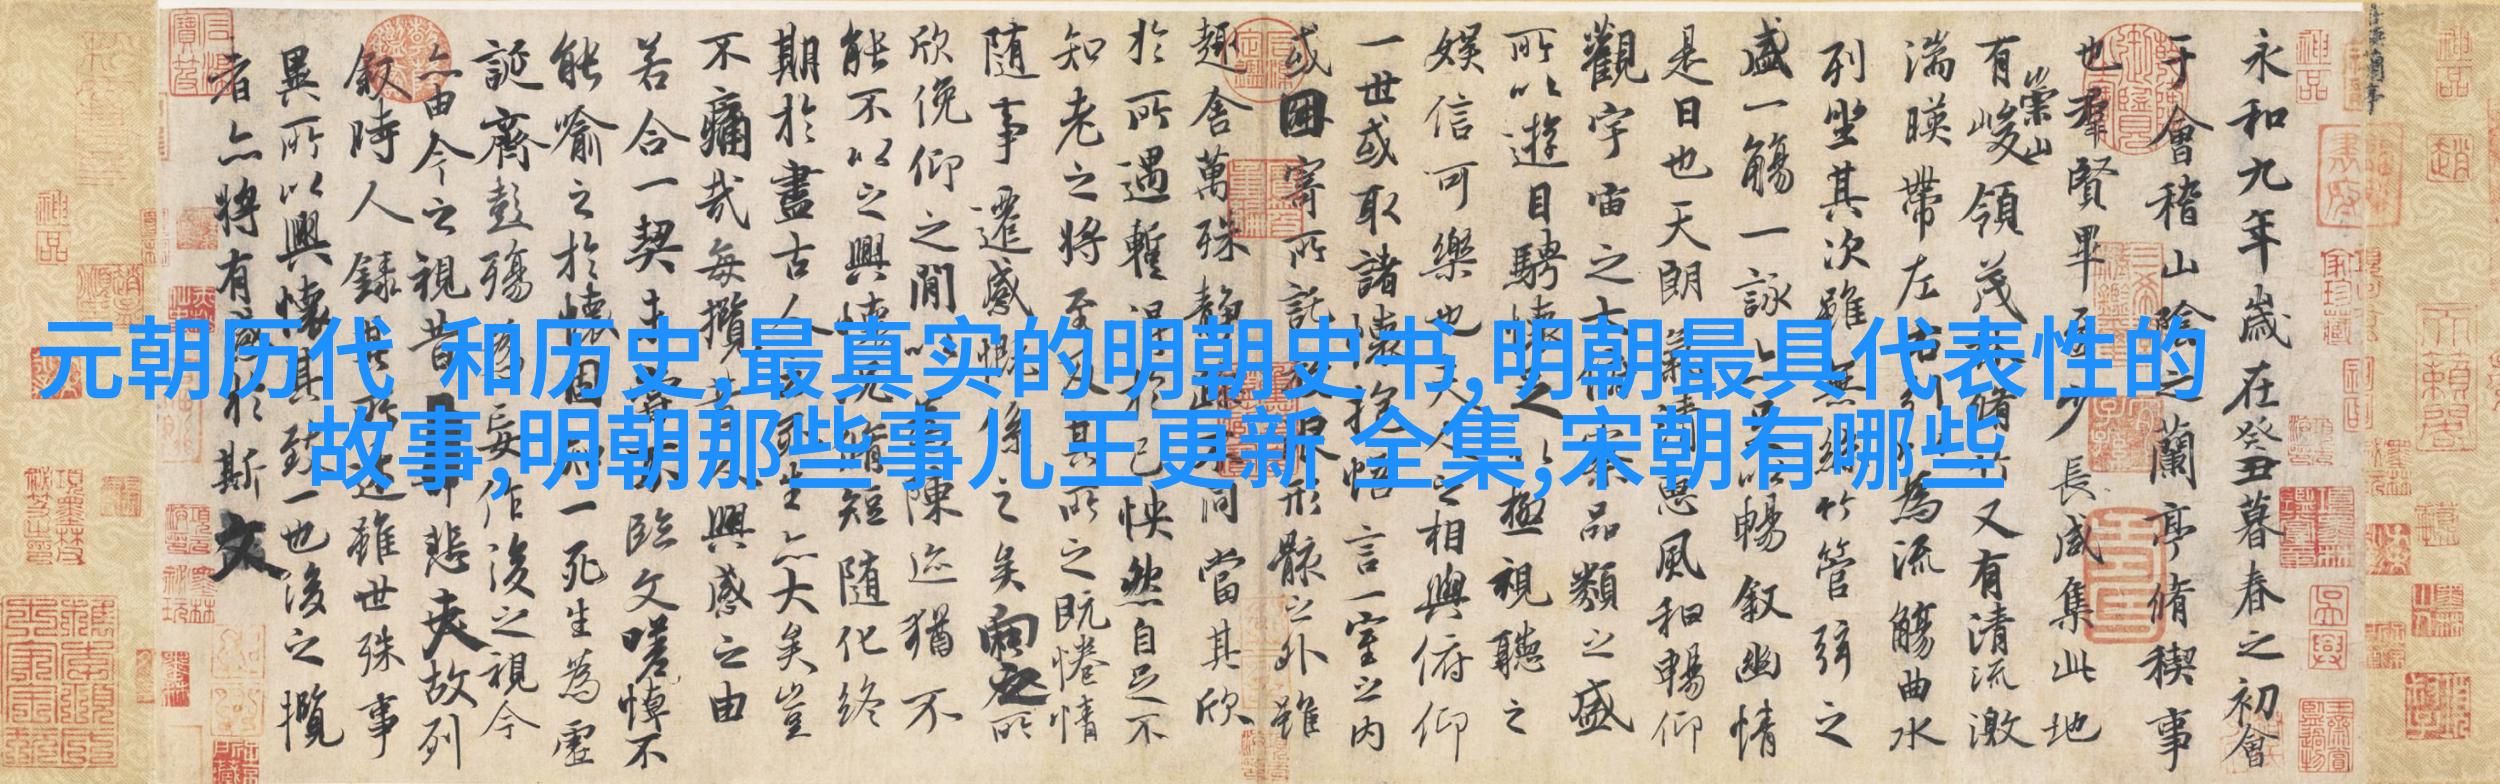 元朝历代 和历史,最真实的明朝史书,明朝最具代表性的
故事,明朝那些事儿王更新 全集,宋朝有哪些
永和九年歲在癸丑暮春之初會
于會稽山陰之蘭亭脩稧事
也羣賢畢至少長咸集此地
有崇山峻領茂林脩竹又有清流激
湍暎帶左右引以為流觴曲水
列坐其次雖無絲竹管弦之
盛一觴一詠亦足以暢敘幽情
是日也天朗氣清惠風和暢仰
觀宇宙之大俯察品類之盛
所以遊目騁懷足以極視聽之
娛信可樂也夫人之相與俯仰
一世或取諸懷抱悟言一室之内
或因寄所託放浪形骸之外雖
趣舍萬殊靜躁不同當其欣
於所遇暫得於己怏然自足不
知老之將至及其所之既惓情
隨事遷感慨係之矣向之所
欣俛仰之閒以為陳迹猶不
能不以之興懷況脩短隨化終
期於盡古人云死生亦大矣豈
不痛哉每攬昔人興感之由
若合一契未嘗不臨文嗟悼不
能喻之於懷固知一死生為虛
誕齊彭殤為妄作後之視今
亦由今之視昔悲夫故列
敘時人錄其所述雖世殊事
異所以興懷其致一也後之攬
者亦將有感於斯文